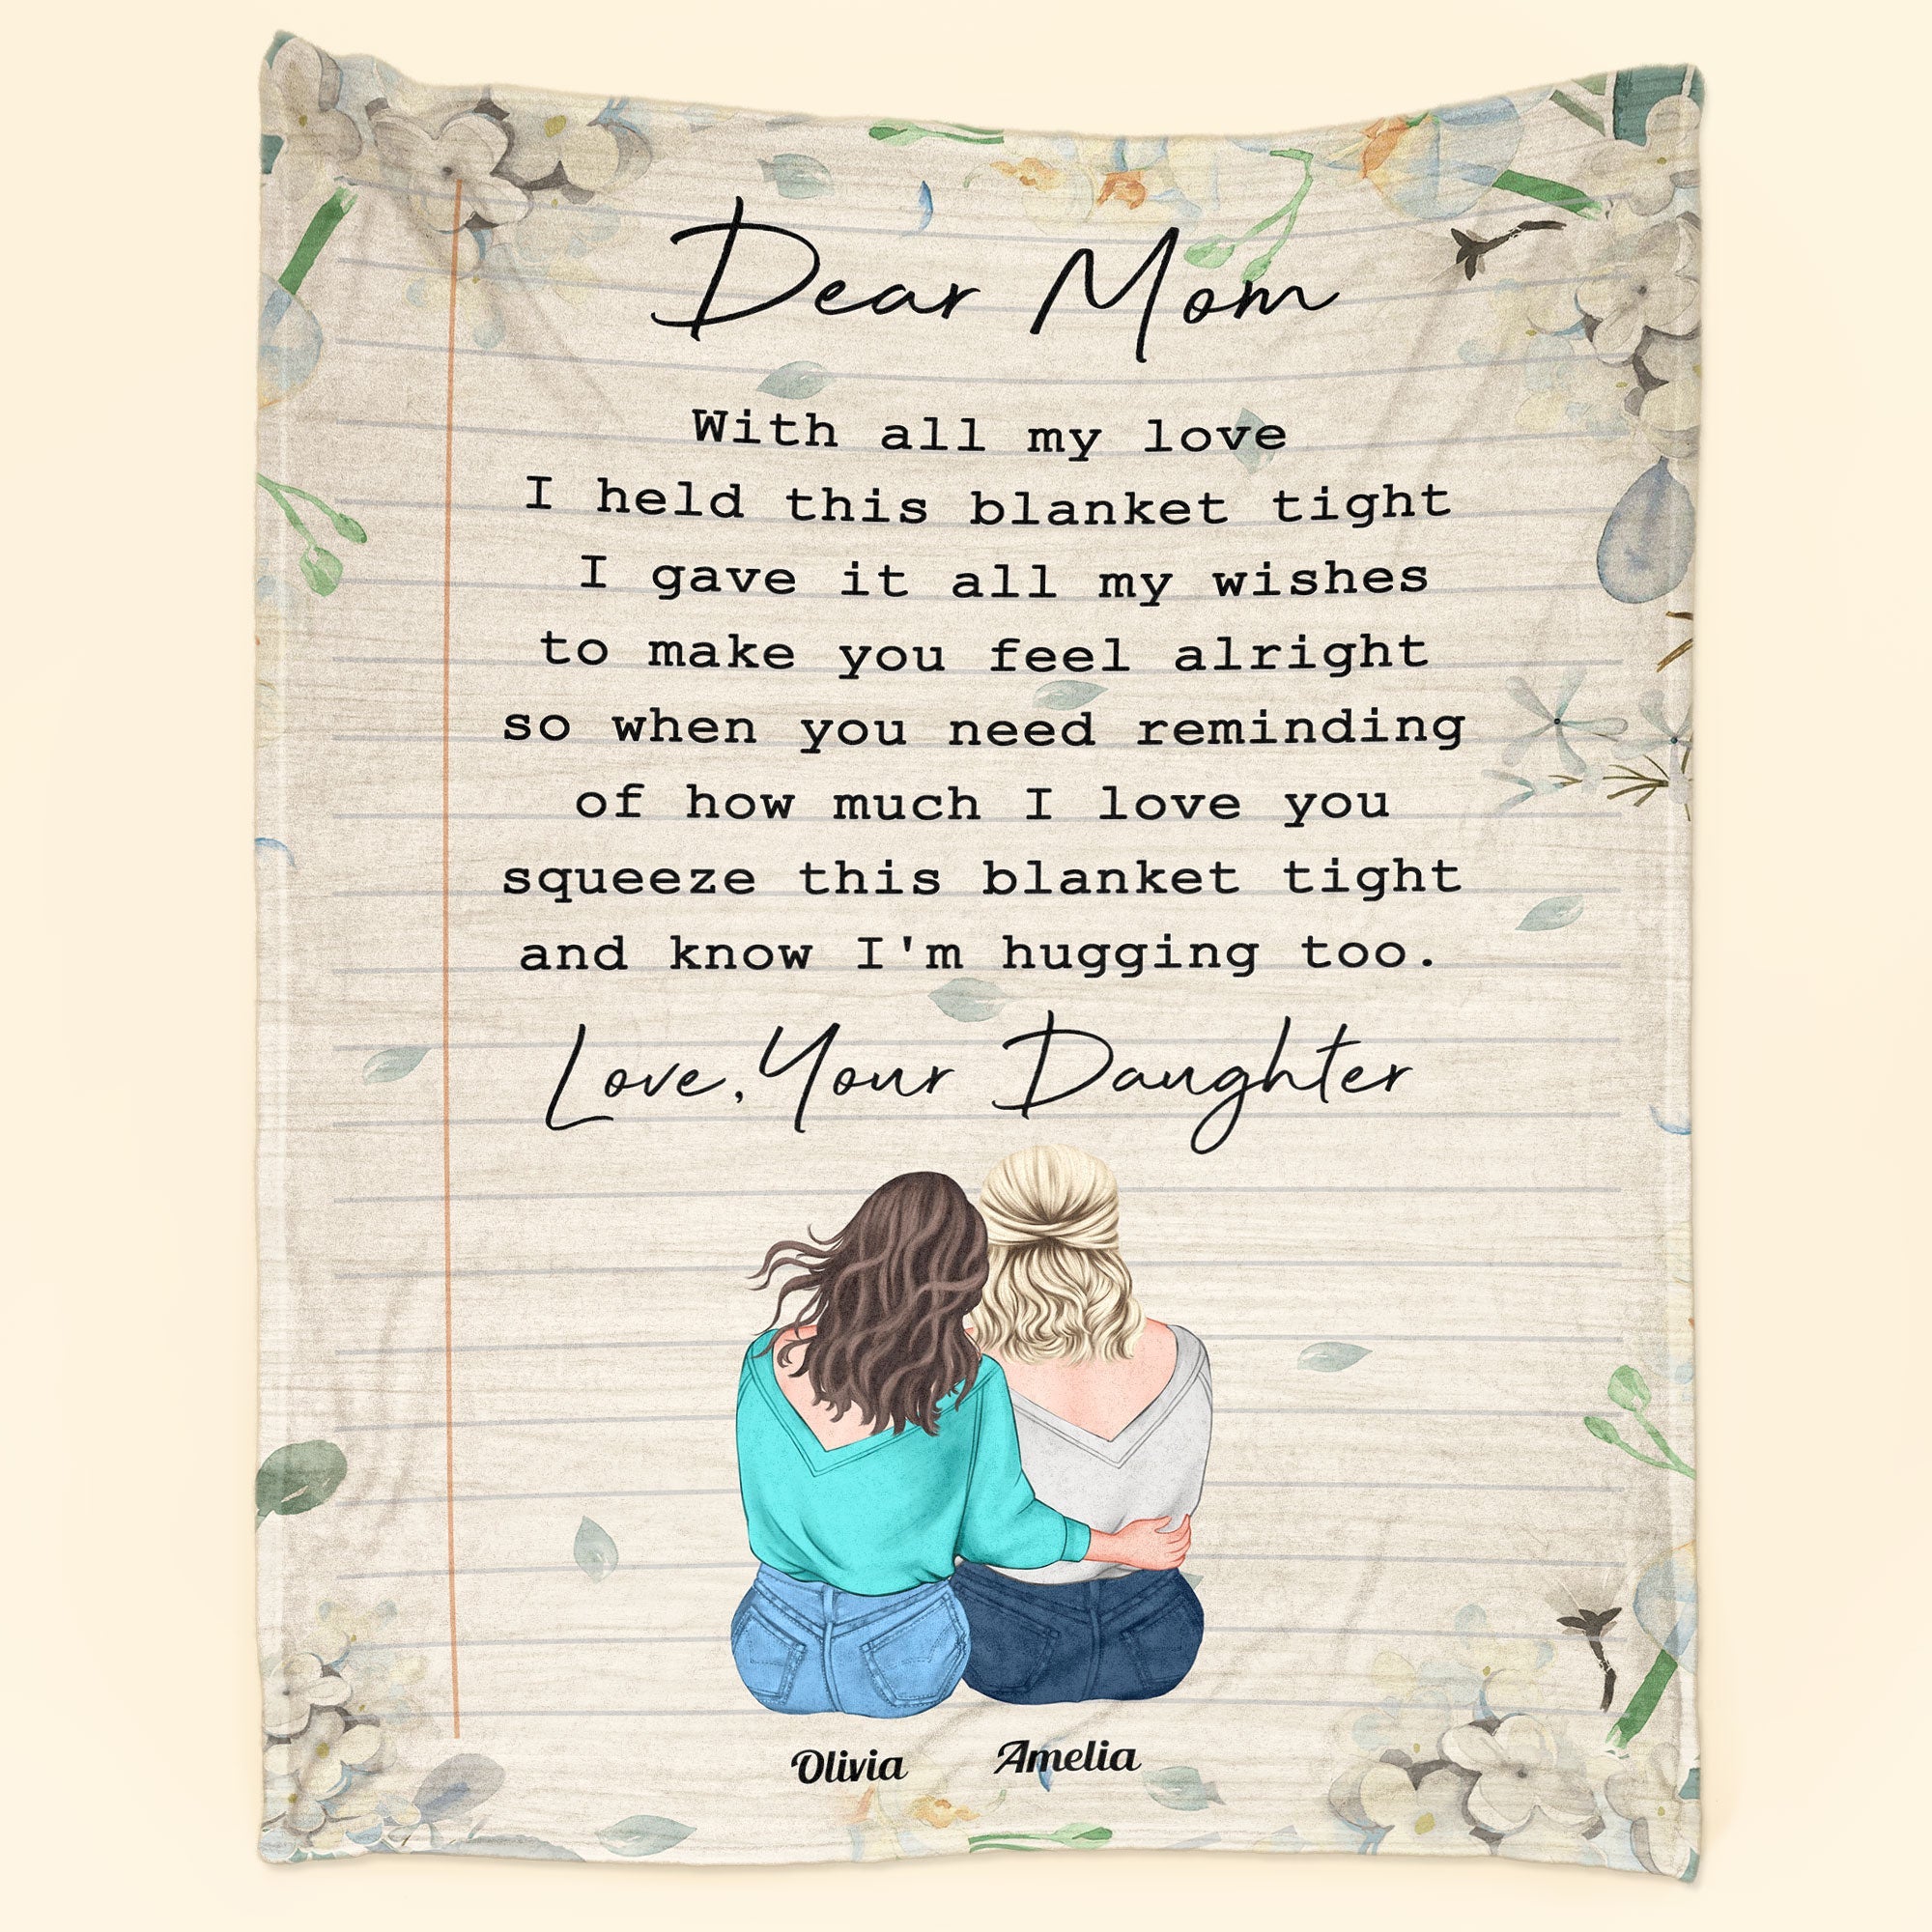 Dear Mom
With all my love
I held this blanket tight
I gave it all my wishes
to make you feel alright
so when you need reminding
of how much I love you
squeeze this blanket tight
and know I'm hugging too.
Love, Your Daughter
Olivia Amelia